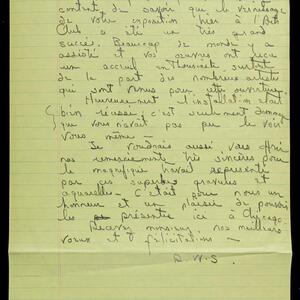 content de savoir que le vernissage
de votre exposition hier à l'Arts
Club a été un très grand
succès. Beaucoup de monde y a
assisté et vos œuvres ont reçu
un accueil enthousiaste surtout
de la part des nombreux artistes
qui sont venus pour cette ouverture.
Heureusement l'installation était
bien réussie; c'est seulement dommage
que vous n'avait pas pu le voir
vous même -
Je voudrais aussi, vous offrir
nos remerciements très sincères pour
le magnifique travail représenté
par ces superbes gravures et
aquarelles - C'était pour nous un
honneur et un plaisir de pouvoir
les présenter ici à Chicago.
Recevez monsieur, nos meilleurs
vœux et félicitations -
R. W. S.